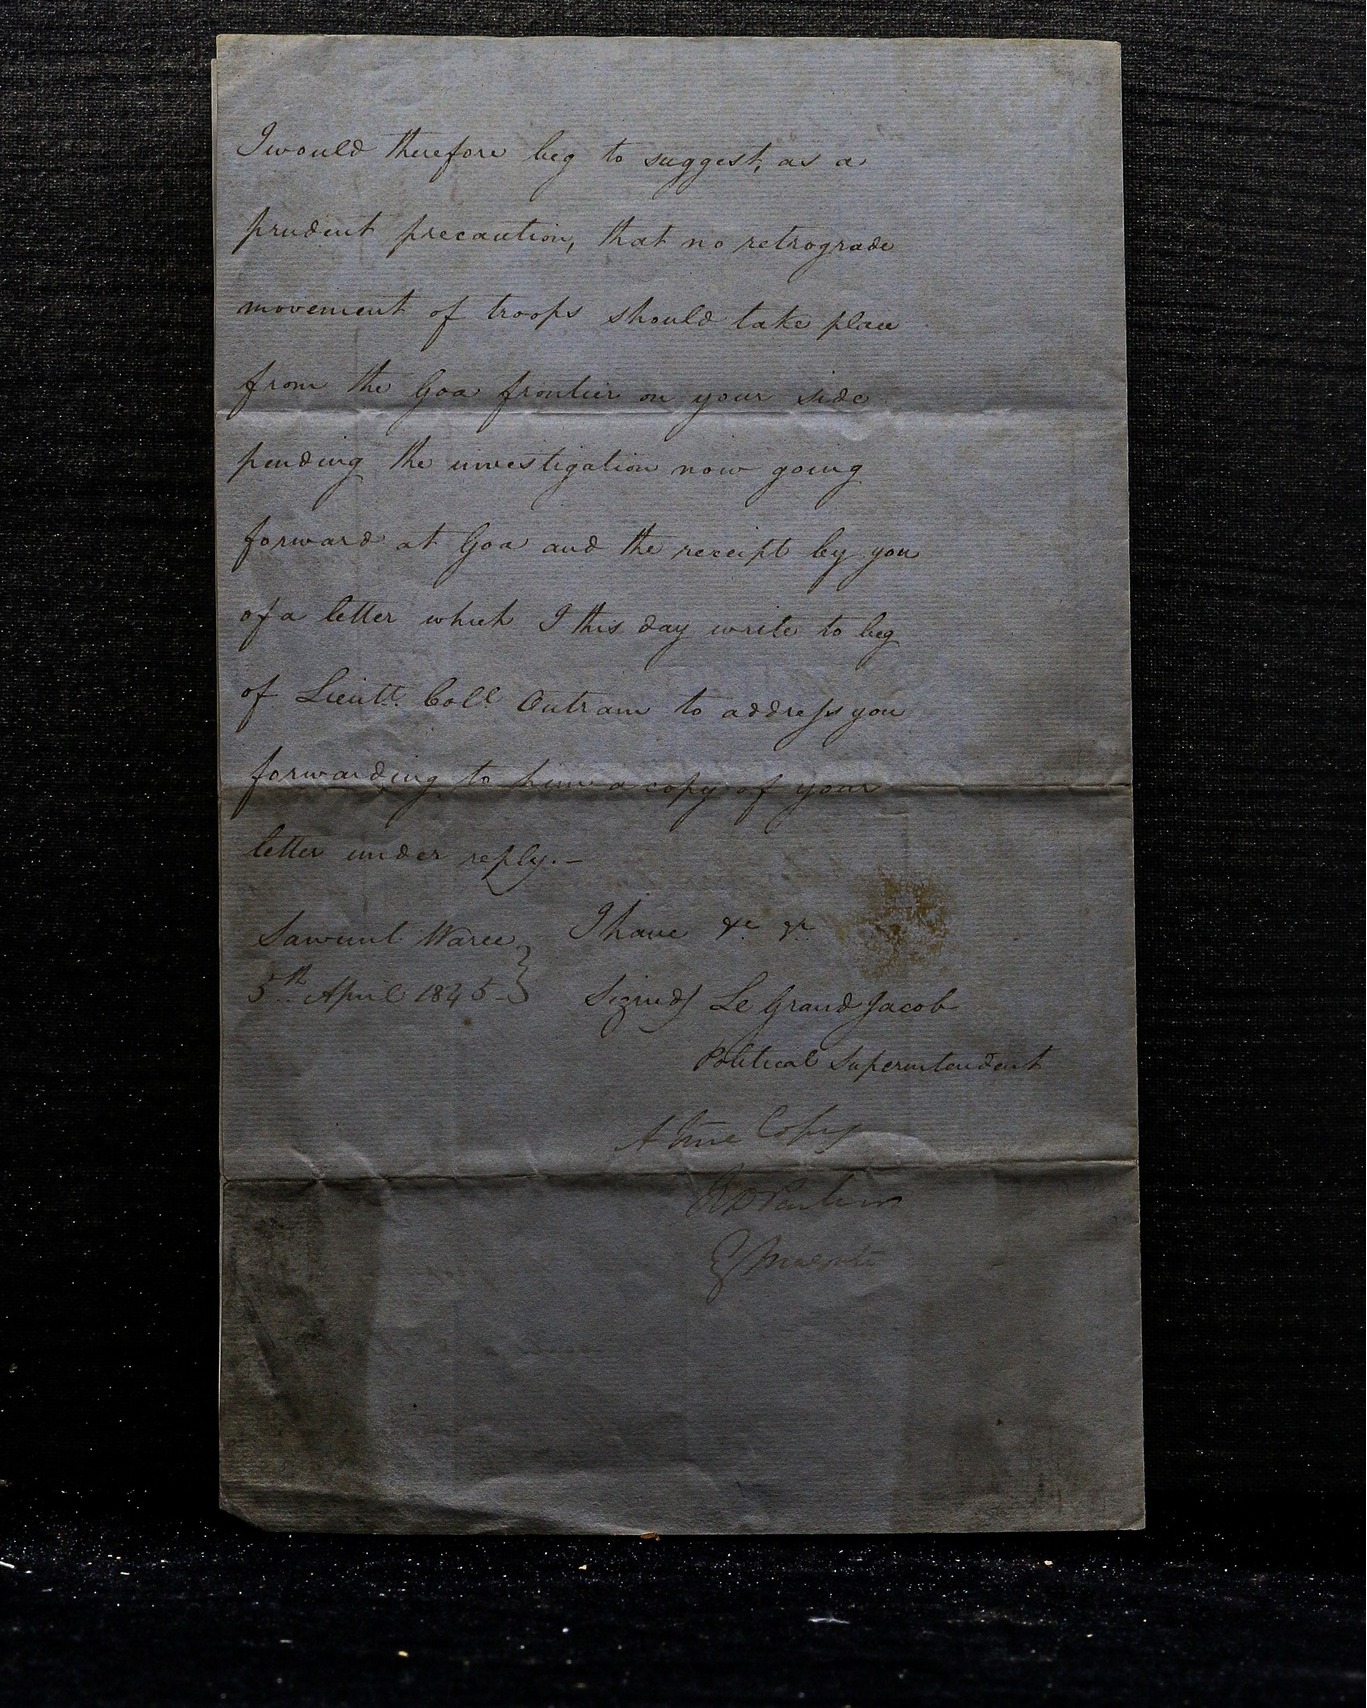 I would therefore beg to suggest, as a
prudent precaution, that no retrograde
movement of troops should take place
from the Goa frontier on your side
pending the investigation now going
forward at Goa and the receipt by you
of a letter which I this day write to beg
of Lieutt. Coll Outram to address you
forwarding to him a copy of your
letter under reply.—
Sawunt Waree } I have &c &c
5th April 1845
Signed/ Le Grand Jacob
Political Superintendent
A true Copy